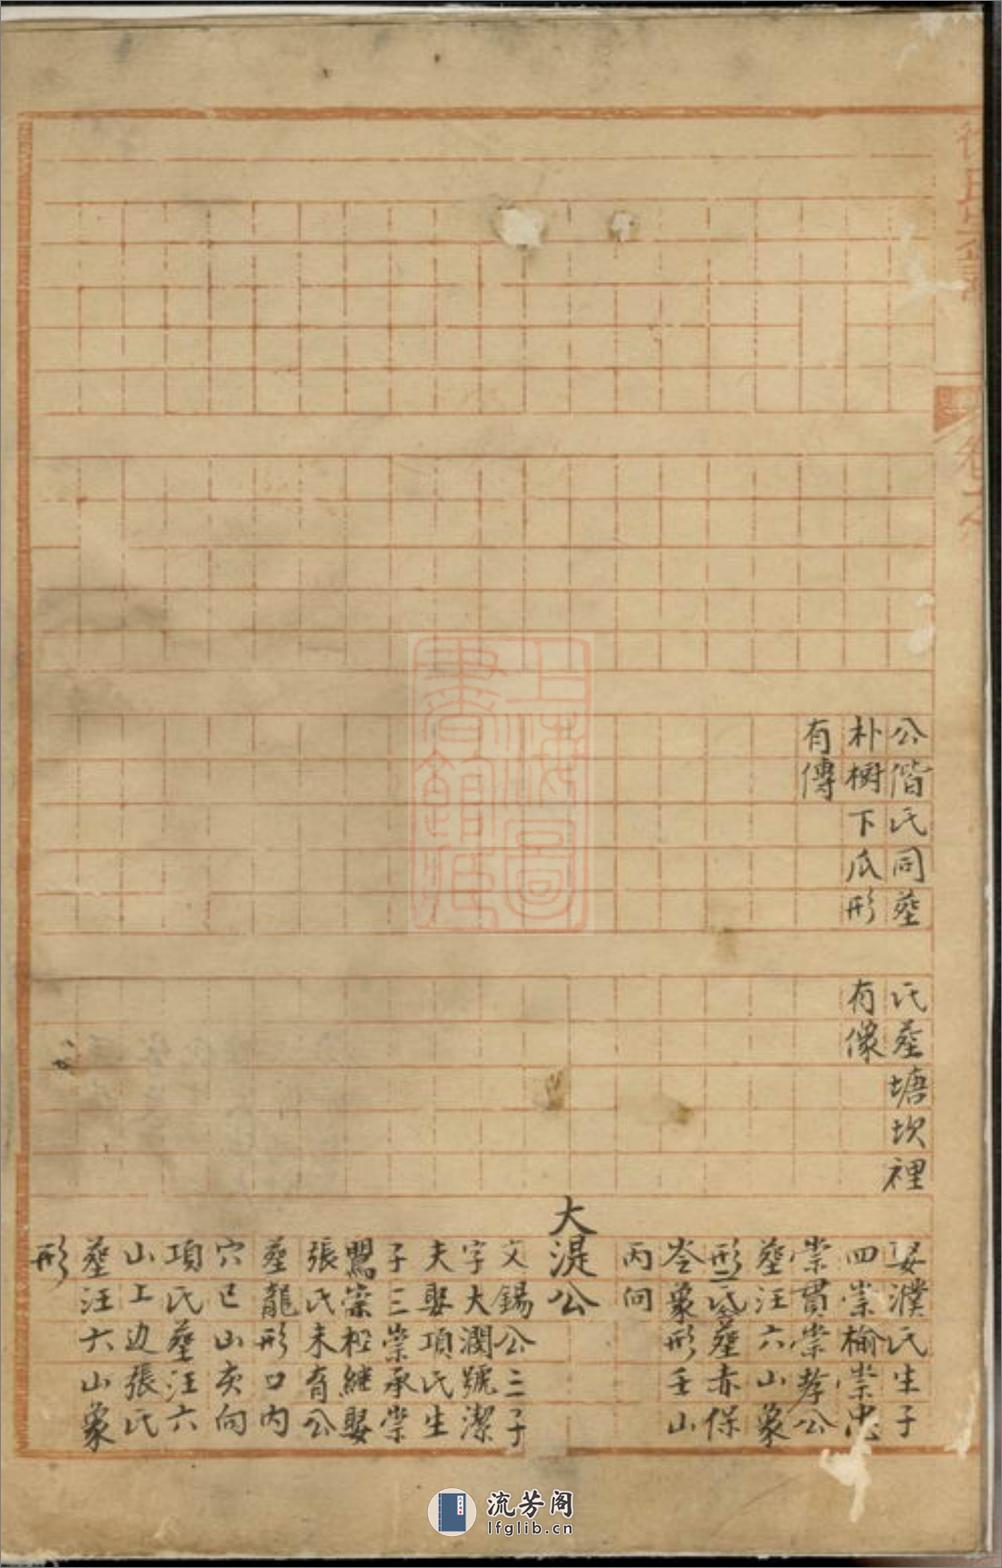 公偕氏同塟
朴樹下瓜形
有傳
氏塟塘坎裡
有像
娶濮氏生子
四崇榆崇忠
崇貫崇孝公
塟汪六山象
形二氏塟赤保
岺象形壬山
丙向
大湜公
文錫公三子
字大潤號潔
夫娶項氏生
子三崇承崇
鸎崇松継娶
張氏未有公
塟龍形口内
穴巳山亥向
項氏塟汪六
山上边張氏
塟汪六山象
形
卷之
上海圖
書館藏
流芳阁
lfglib.cn